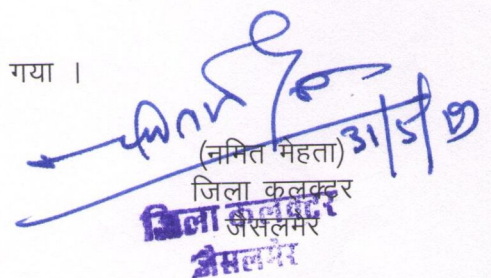 गया ।
31/5/19
(नमित मेहता)
जिला कलक्टर
जैसलमेर
जिला कलक्टर
जैसलमेर